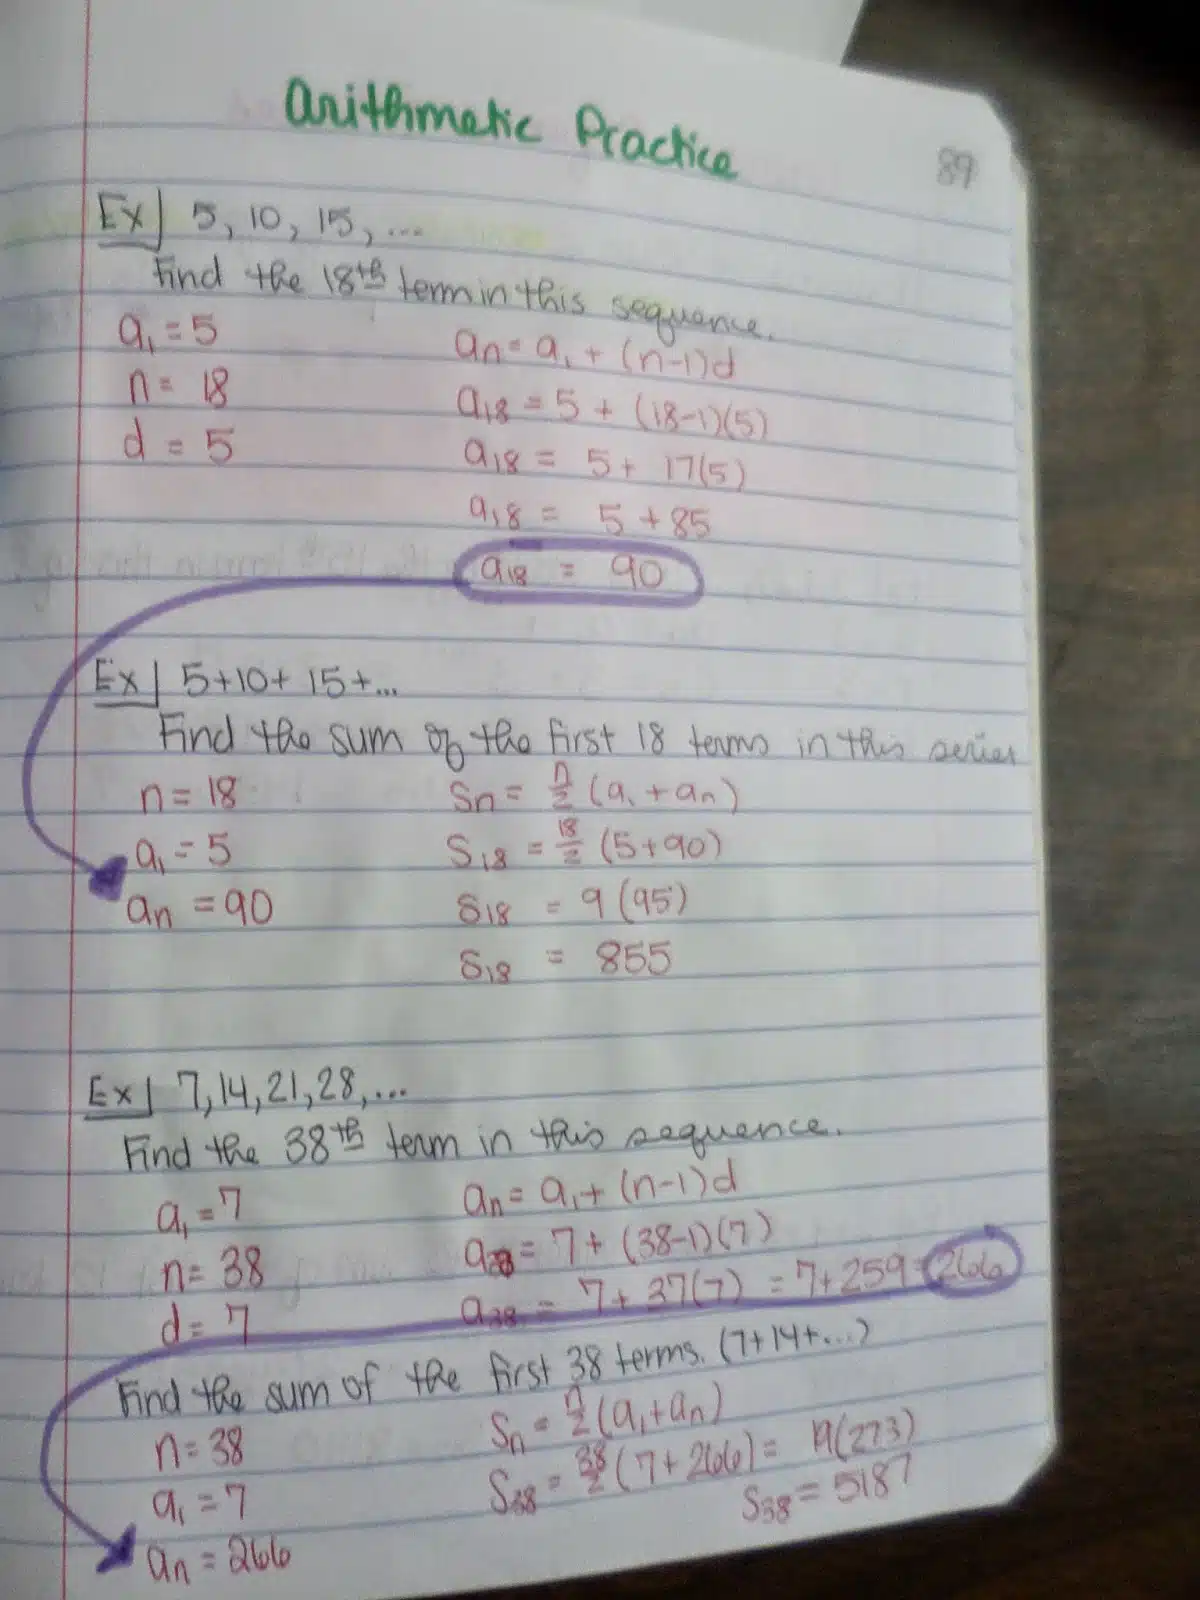 Arithmetic Practice
89
Ex| 5, 10, 15, ...
Find the 18th term in this sequence.
a₁ = 5    aₙ = a₁ + (n-1)d
n = 18    a₁₈ = 5 + (18-1)(5)
d = 5    a₁₈ = 5 + 17(5)
a₁₈ = 5 + 85
a₁₈ = 90
Ex| 5+10+ 15+...
Find the sum of the first 18 terms in this series
n = 18    Sₙ = n/2 (a₁ + aₙ)
a₁ = 5    S₁₈ = 18/2 (5+90)
aₙ = 90    S₁₈ = 9 (95)
S₁₈ = 855
Ex| 7, 14, 21, 28, ...
Find the 38th term in this sequence.
a₁ = 7    aₙ = a₁ + (n-1)d
n = 38    a₃₈ = 7 + (38-1)(7)
d = 7    a₃₈ = 7 + 37(7) = 7 + 259 = 266
Find the sum of the first 38 terms. (7+14+...)
n = 38    Sₙ = n/2 (a₁ + aₙ)
a₁ = 7    S₃₈ = 38/2 (7 + 266) = 19(273)
aₙ = 266    S₃₈ = 5187